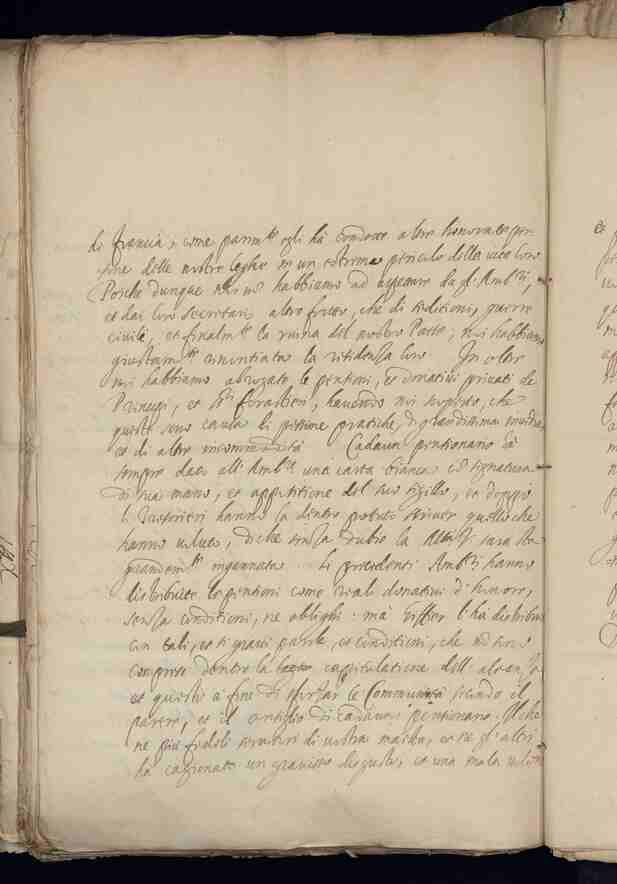 di francia, come parim.te egli hà condotte altre honorate per
sone delle nostre leghe in un estremo periculo della vita loro
Poiche dunque noi non habbiamo ad aspettare da gl'Amb.ri,
et dai loro secretarii altro frutto, che di seditioni, guerre
civile, et finalm.te la ruina del nostro Patto; noi habbiamo
giustam.te rinuntiato la residenza loro. In oltre
noi habbiamo abrogato le pensioni, et donativi privati de
Principi, et forastieri, havendo noi scoperto, che
queste sono causa di pessime pratiche, di grandissima
et di altre incommodità. Cadaun pensionario hà
sempre dato all'Amb.re una carta bianca co signatura
di sua mano, et appositione del suo sigillo, et doppio
li Tesorieri hanno la dentro potuto scriver quello che
hanno voluto, di che senza dubio la sara sta
grandem.te ingannata. Li precedenti Amb.ri hanno
distribuite le pensioni come reali donativi d'honore,
senza conditioni, ne oblighi. mà l'hà distribui
con tali, et si gravi parole, et conditioni, che non sono
comprese dentro la capitulatione dell'aleanza
et questo a fine di sforzar le Communità secondo il
parere, et il consiglio di cadaun pensionario. Il che
ne più fideli servitori di vostra maestà, et tra gl'altri
ha cagionato un gravissimo disgusto, et una mala